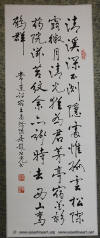 清溪深不測隱處惟孤雲松際
露微月清光猶為君茅亭宿花影
藥院滋苔紋余亦謝時去西山鸞
鶴群
常建詩